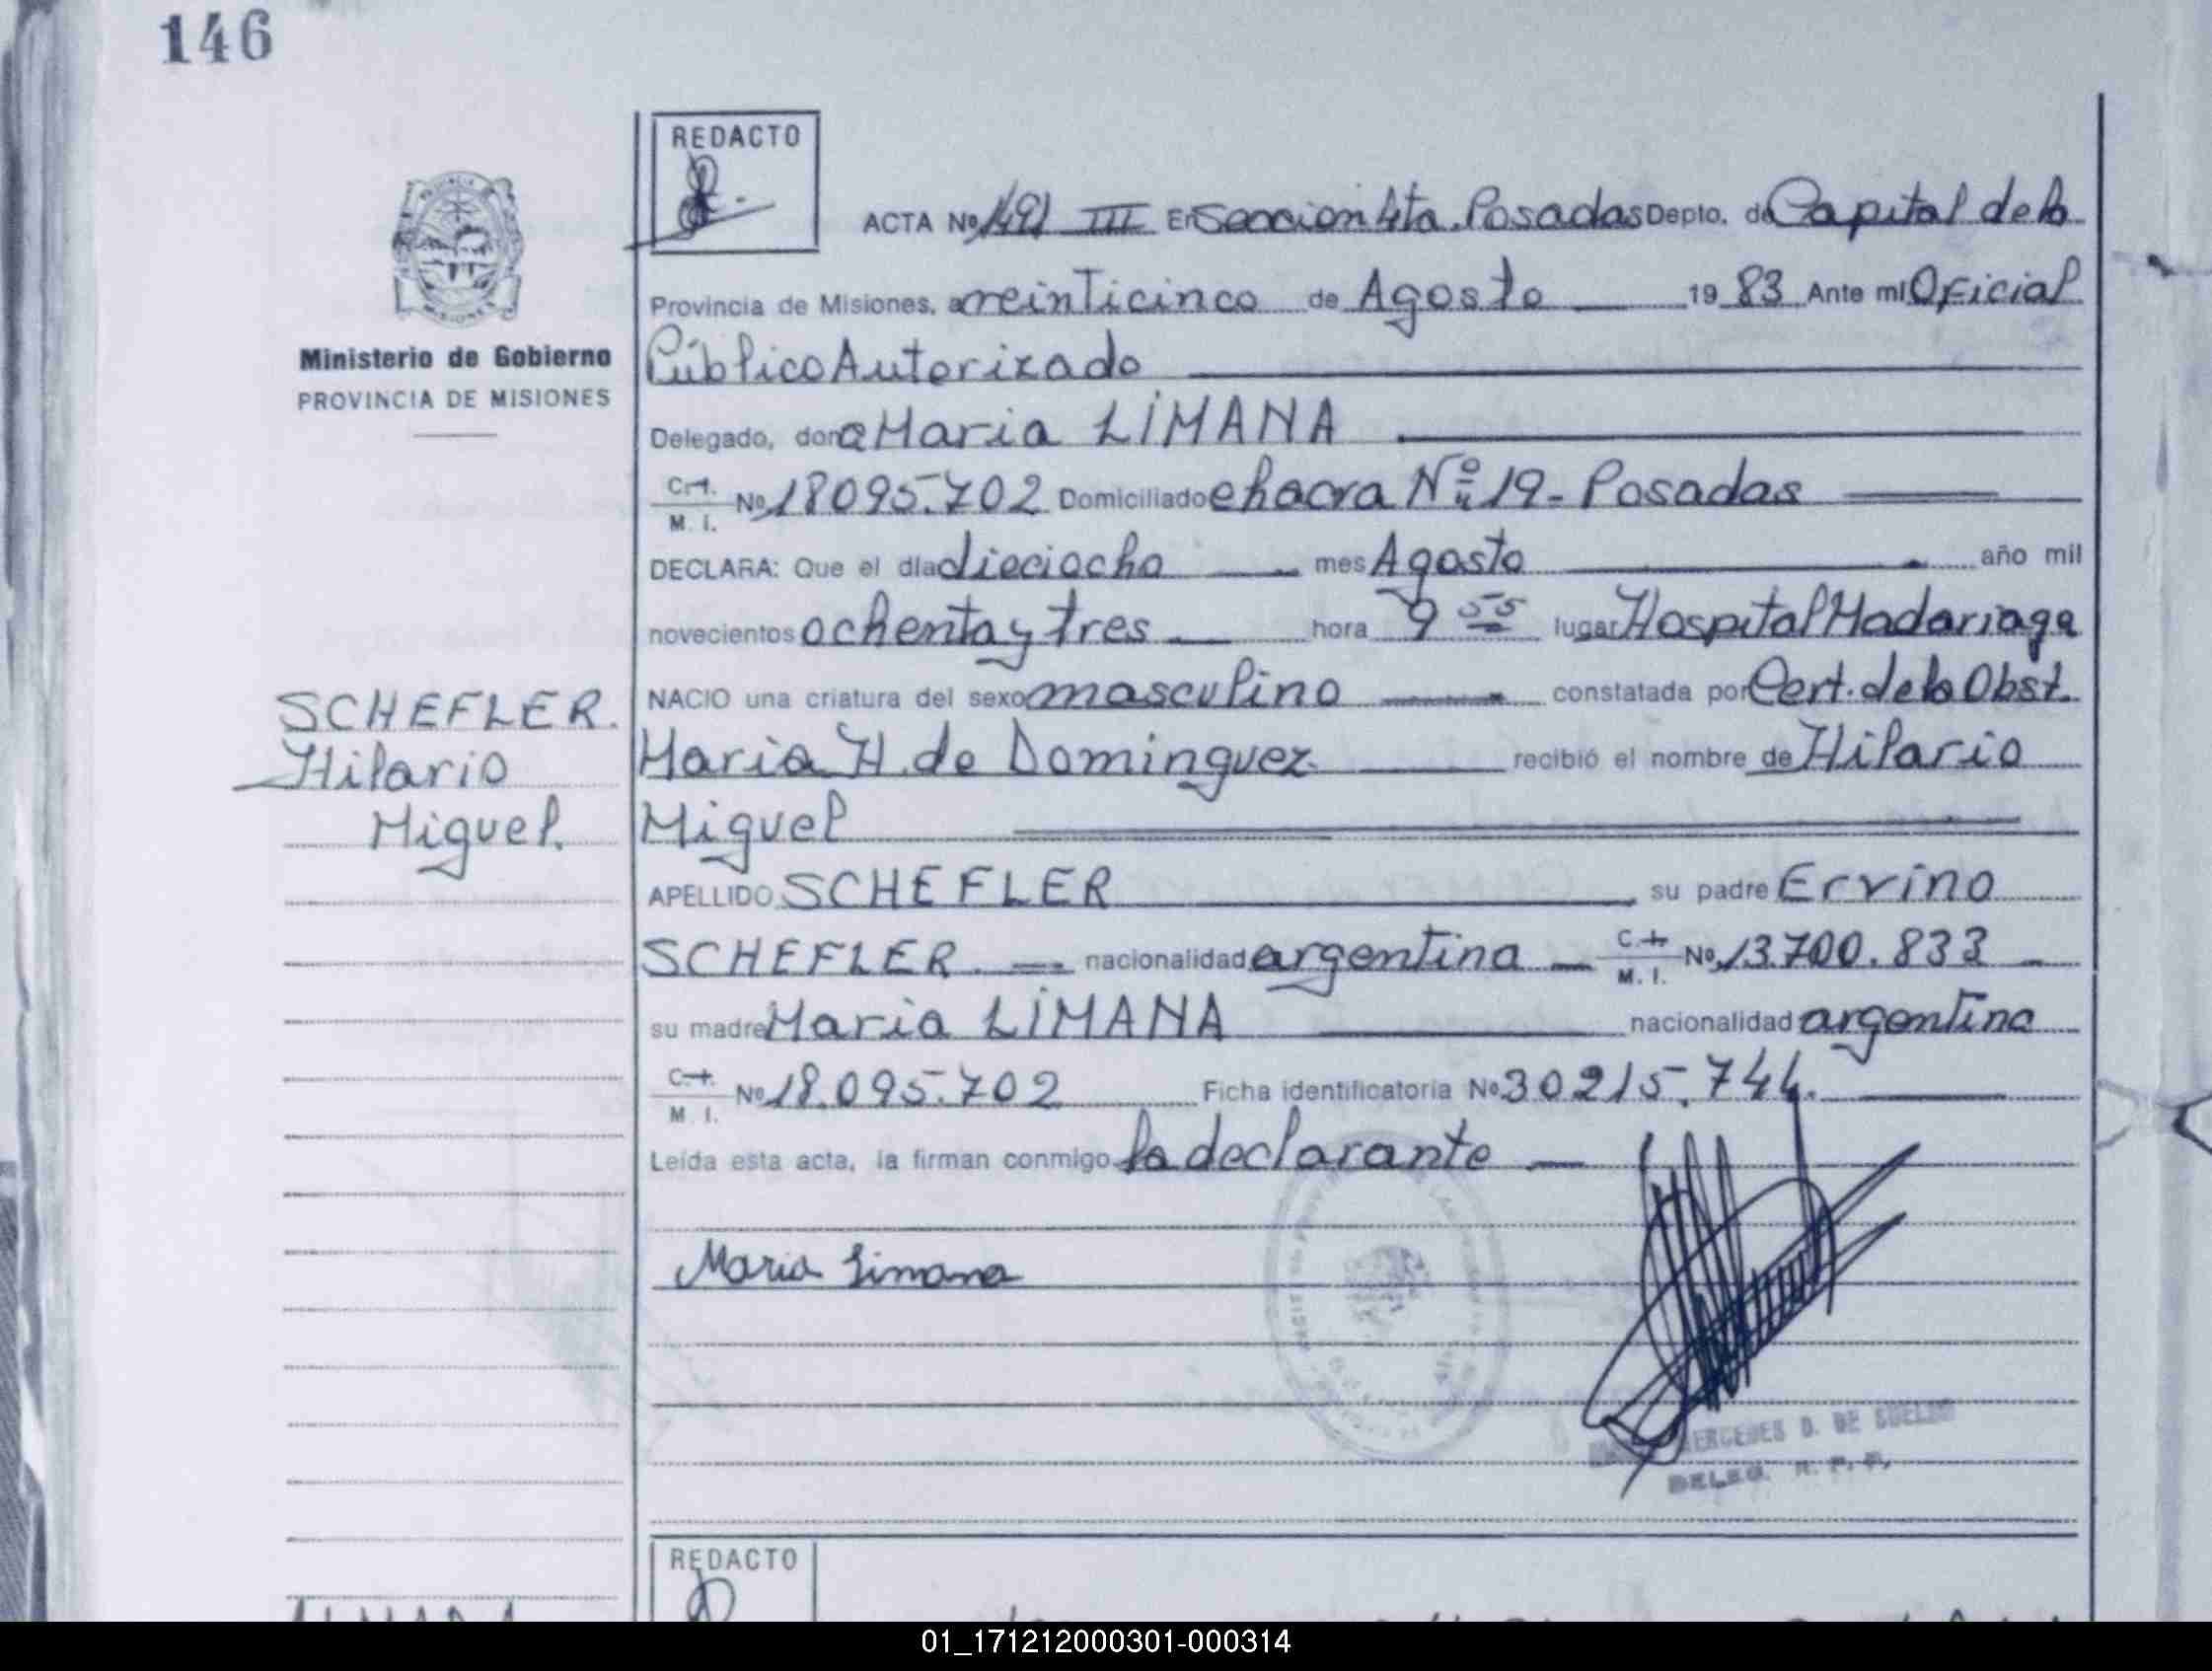 146
REDACTO
ACTA Nº 1491 III En Sección 4ta. Posadas Depto. de Capital de la
Provincia de Misiones, a veinticinco de Agosto 19 83 Ante mí Oficial
Público Autorizado
Ministerio de Gobierno
PROVINCIA DE MISIONES
Delegado, doña Maria LIMANA
C. I. M. I. Nº 18095.702 Domiciliado chacra Nº 19 - Posadas
DECLARA: Que el día dieciocho mes Agosto año mil
novecientos ochenta y tres hora 9 55 lugar Hospital Madariaga
NACIO una criatura del sexo masculino constatada por Cert. de la Obst.
SCHEFLER.
Hilario
Miguel.
Maria H. de Dominguez recibió el nombre de Hilario
Miguel
APELLIDO SCHEFLER su padre Ervino
SCHEFLER nacionalidad argentina C. I. M. I. Nº 13.700.833
su madre Maria LIMANA nacionalidad argentina
C. I. M. I. Nº 18.095.702 Ficha identificatoria Nº 30215.744.
Leída esta acta, la firman conmigo la declarante
Maria Limana
MERCEDES D. DE
DELEG. R. P. P.
REDACTO
01_171212000301-000314